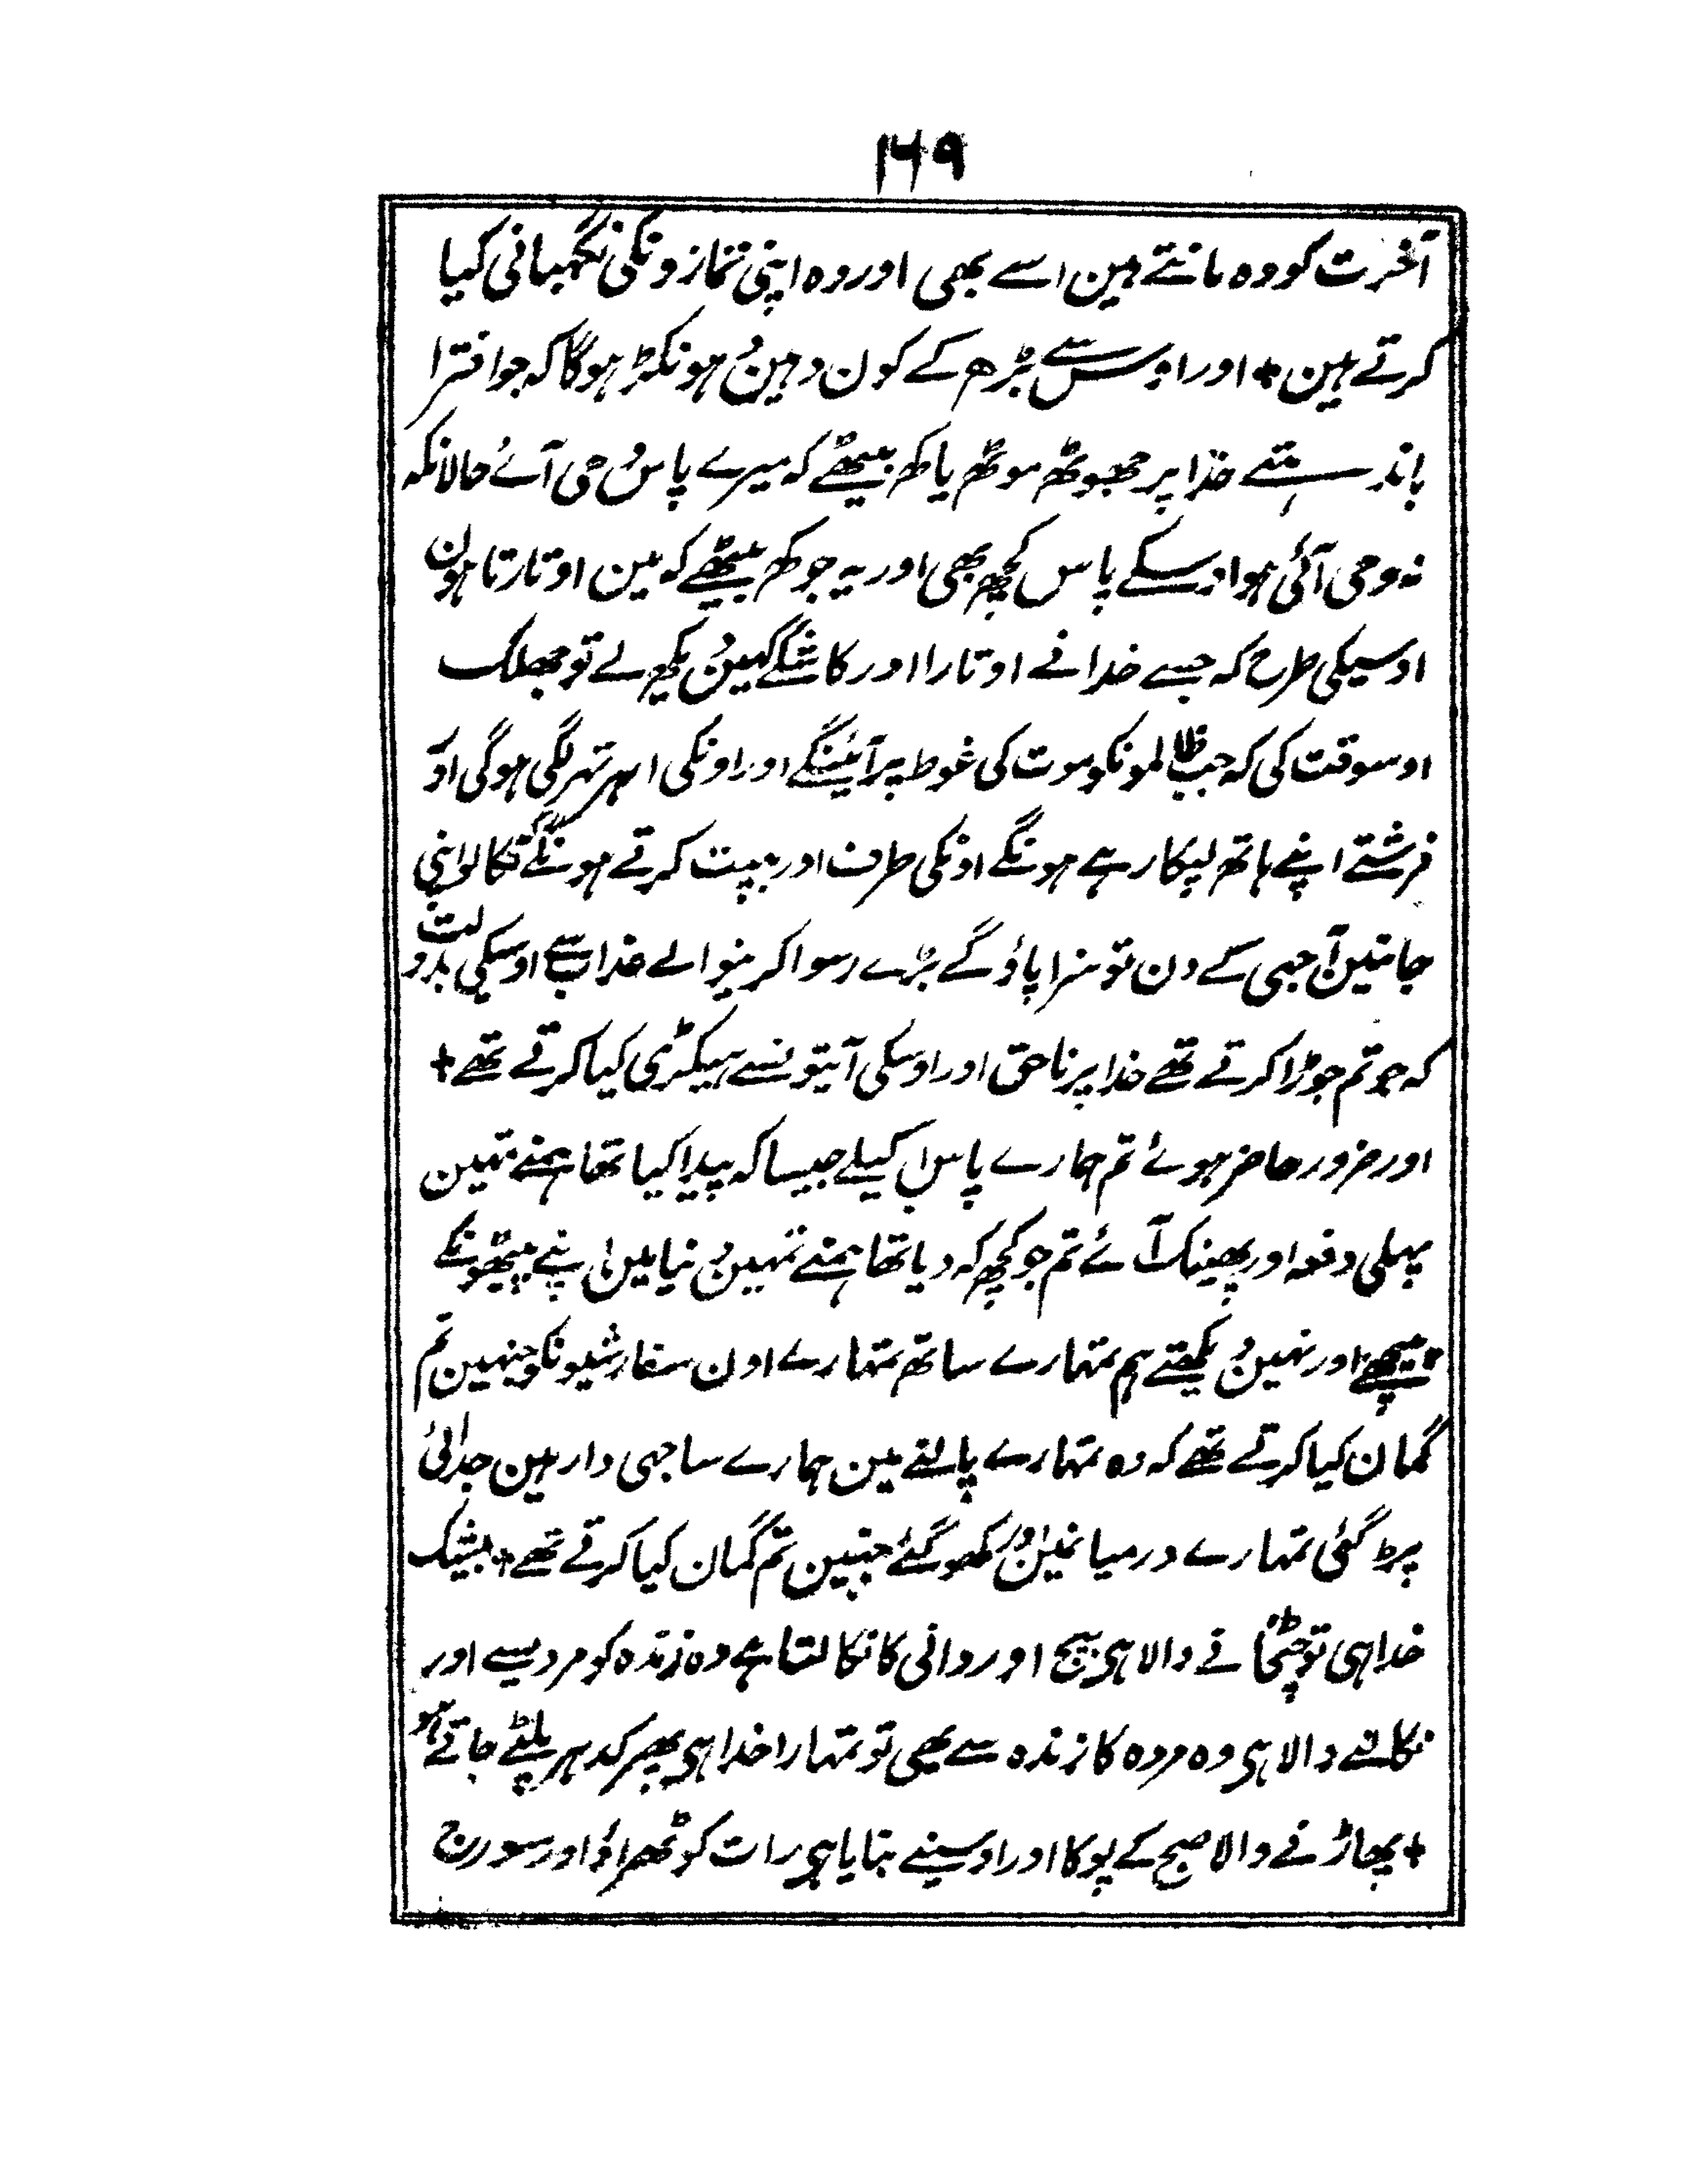 ۱۶۹
آخرت کو وہ مانتے ہین اسے بھی اور وہ اپنی نمازونکی نگہبانی کیا
کرتے ہین + اور اوس سے بڑھ کے کون دہین ہونکڑ ہوگا کہ جو افترا
باندہتے خدا پر جھوٹھ موٹھ یا کھ بیٹھے کہ میرے پاس وحی آئے حالانکہ
نہ وحی آئی ہو اوسکے پاس کچھ بھی اور یہ جو کھ بیٹھے کہ مین اوتارتا ہون
اوسیکی طرح کہ جسے خدا نے اوتارا اور کاشکے کہین دیکھ لے تو جھلک
اوسوقت کی کہ جب ظالمونکو موت کی غوط پر آئینگے اور اونکی اہر تہر لگی ہوگی اور
فرشتے اپنے ہاتھ لپکا رہے ہونگے اونکی طرف اور بپت کرتے ہونگے کہ نکالو اپنی
جانین آجہی کے دن تو سزا پاؤ گے بڑے رسوا کرنیوالے عذاب سے اوسکی بدولت
کہ جو تم جوڑا کرتے تھے خدا پر ناحق اور اوسکی آیتونسے ہیکڑی کیا کرتے تھے +
اور ضرور حاضر ہوئے تم ہمارے پاس اکیلے جیسا کہ پیدا کیا تھا ہمنے تمہین
پہلی دفعہ اور پھینک آئے تم جو کچھ کہ دیا تھا ہمنے تمہین دنیا مین اپنے پیٹھونکے
پیچھے اور نہین دیکھتے ہم تمہارے ساتھ تمہارے اون سفارشیونکو جنہین تم
گمان کیا کرتے تھے کہ وہ تمہارے پالنے مین ہمارے ساجہی دار ہین جدائی
پڑ گئی تمہارے درمیانمین اور کھو گئے جنہین تم گمان کیا کرتے تھے + بیشک
خدا ہی تو چٹخانے والا ہی بیج اور دانی کا نکالتا ہے وہ زندہ کو مردیسے اور
نکالنے والا ہی وہ مردہ کا زندہ سے بھی تو تمہارا خدا ہی پھر کدہر پلٹے جاتے ہو
+ پھاڑنے والا صبح کے پوکا اور اوسینے بنایا ہی رات کو ٹھراؤ اور سورج